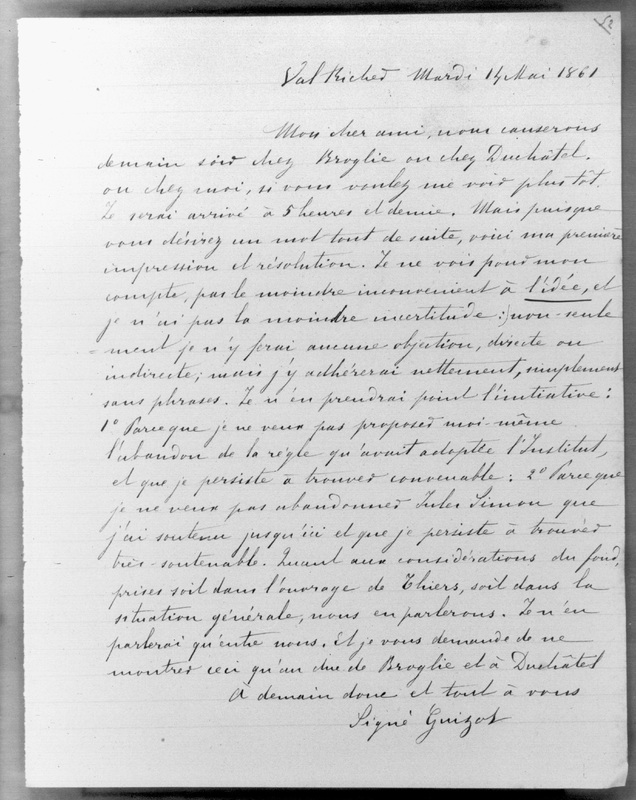 52
Val Richer Mardi 14 Mai 1861
Mon cher ami, nous causerons
demain soir chez Broglie ou chez Duchâtel.
ou chez moi, si vous voulez me voir plus tôt.
Je serai arrivé à 5 heures et demie. Mais puisque
vous désirez un mot tout de suite, voici ma première
impression et résolution. Je ne vois pour mon
compte, pas le moindre inconvenient à l'idée, et
je n'ai pas la moindre incertitude : non-seule
=ment je n'y ferai aucune objection, directe ou
indirecte; mais j'y adhérerai nettement, simplement
sans phrases. Je n'en prendrai point l'initiative :
1º Parceque je ne veux pas proposer moi-même
l'abandon de la règle qu'avait adoptée l'Institut,
et que je persiste à trouver convenable : 2º Parceque
je ne veux pas abandonner Jules Simon que
j'ai soutenu jusqu'ici et que je persiste à trouver
très-soutenable. Quant aux considérations du fond,
prises soit dans l'ouvrage de Thiers, soit dans la
situation générale, nous en parlerons. Je n'en
parlerai qu'entre nous. Et je vous demande de ne
montrer ceci qu'au duc de Broglie et à Duchâtel
À demain donc et tout à vous
Signé Guizot